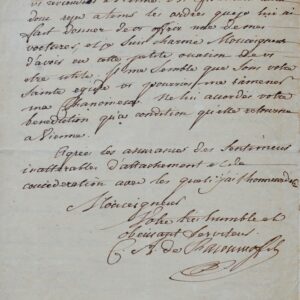 donc reçu a tems les ordres quaje lui ai
fait donner de v. offrir une de mes
voitures, et suis charmé Monseigneur
d'avoir en cette petite occasion de v.
etre utile. Il me semble que sous votre
Sainte egide vs pourrés me ramener
ma Chanoinesse. Ne lui accordés votre
benediction qu'a condition qu'elle retourne
a Vienne.
Agrées les assurances des Sentimens
inalterables d'attachement et de
consideration avec lesquels j'ai l'honneur de
Monseigneur
Votre très humble et
obeissant Serviteur
C. A. de Rasoumoffsky